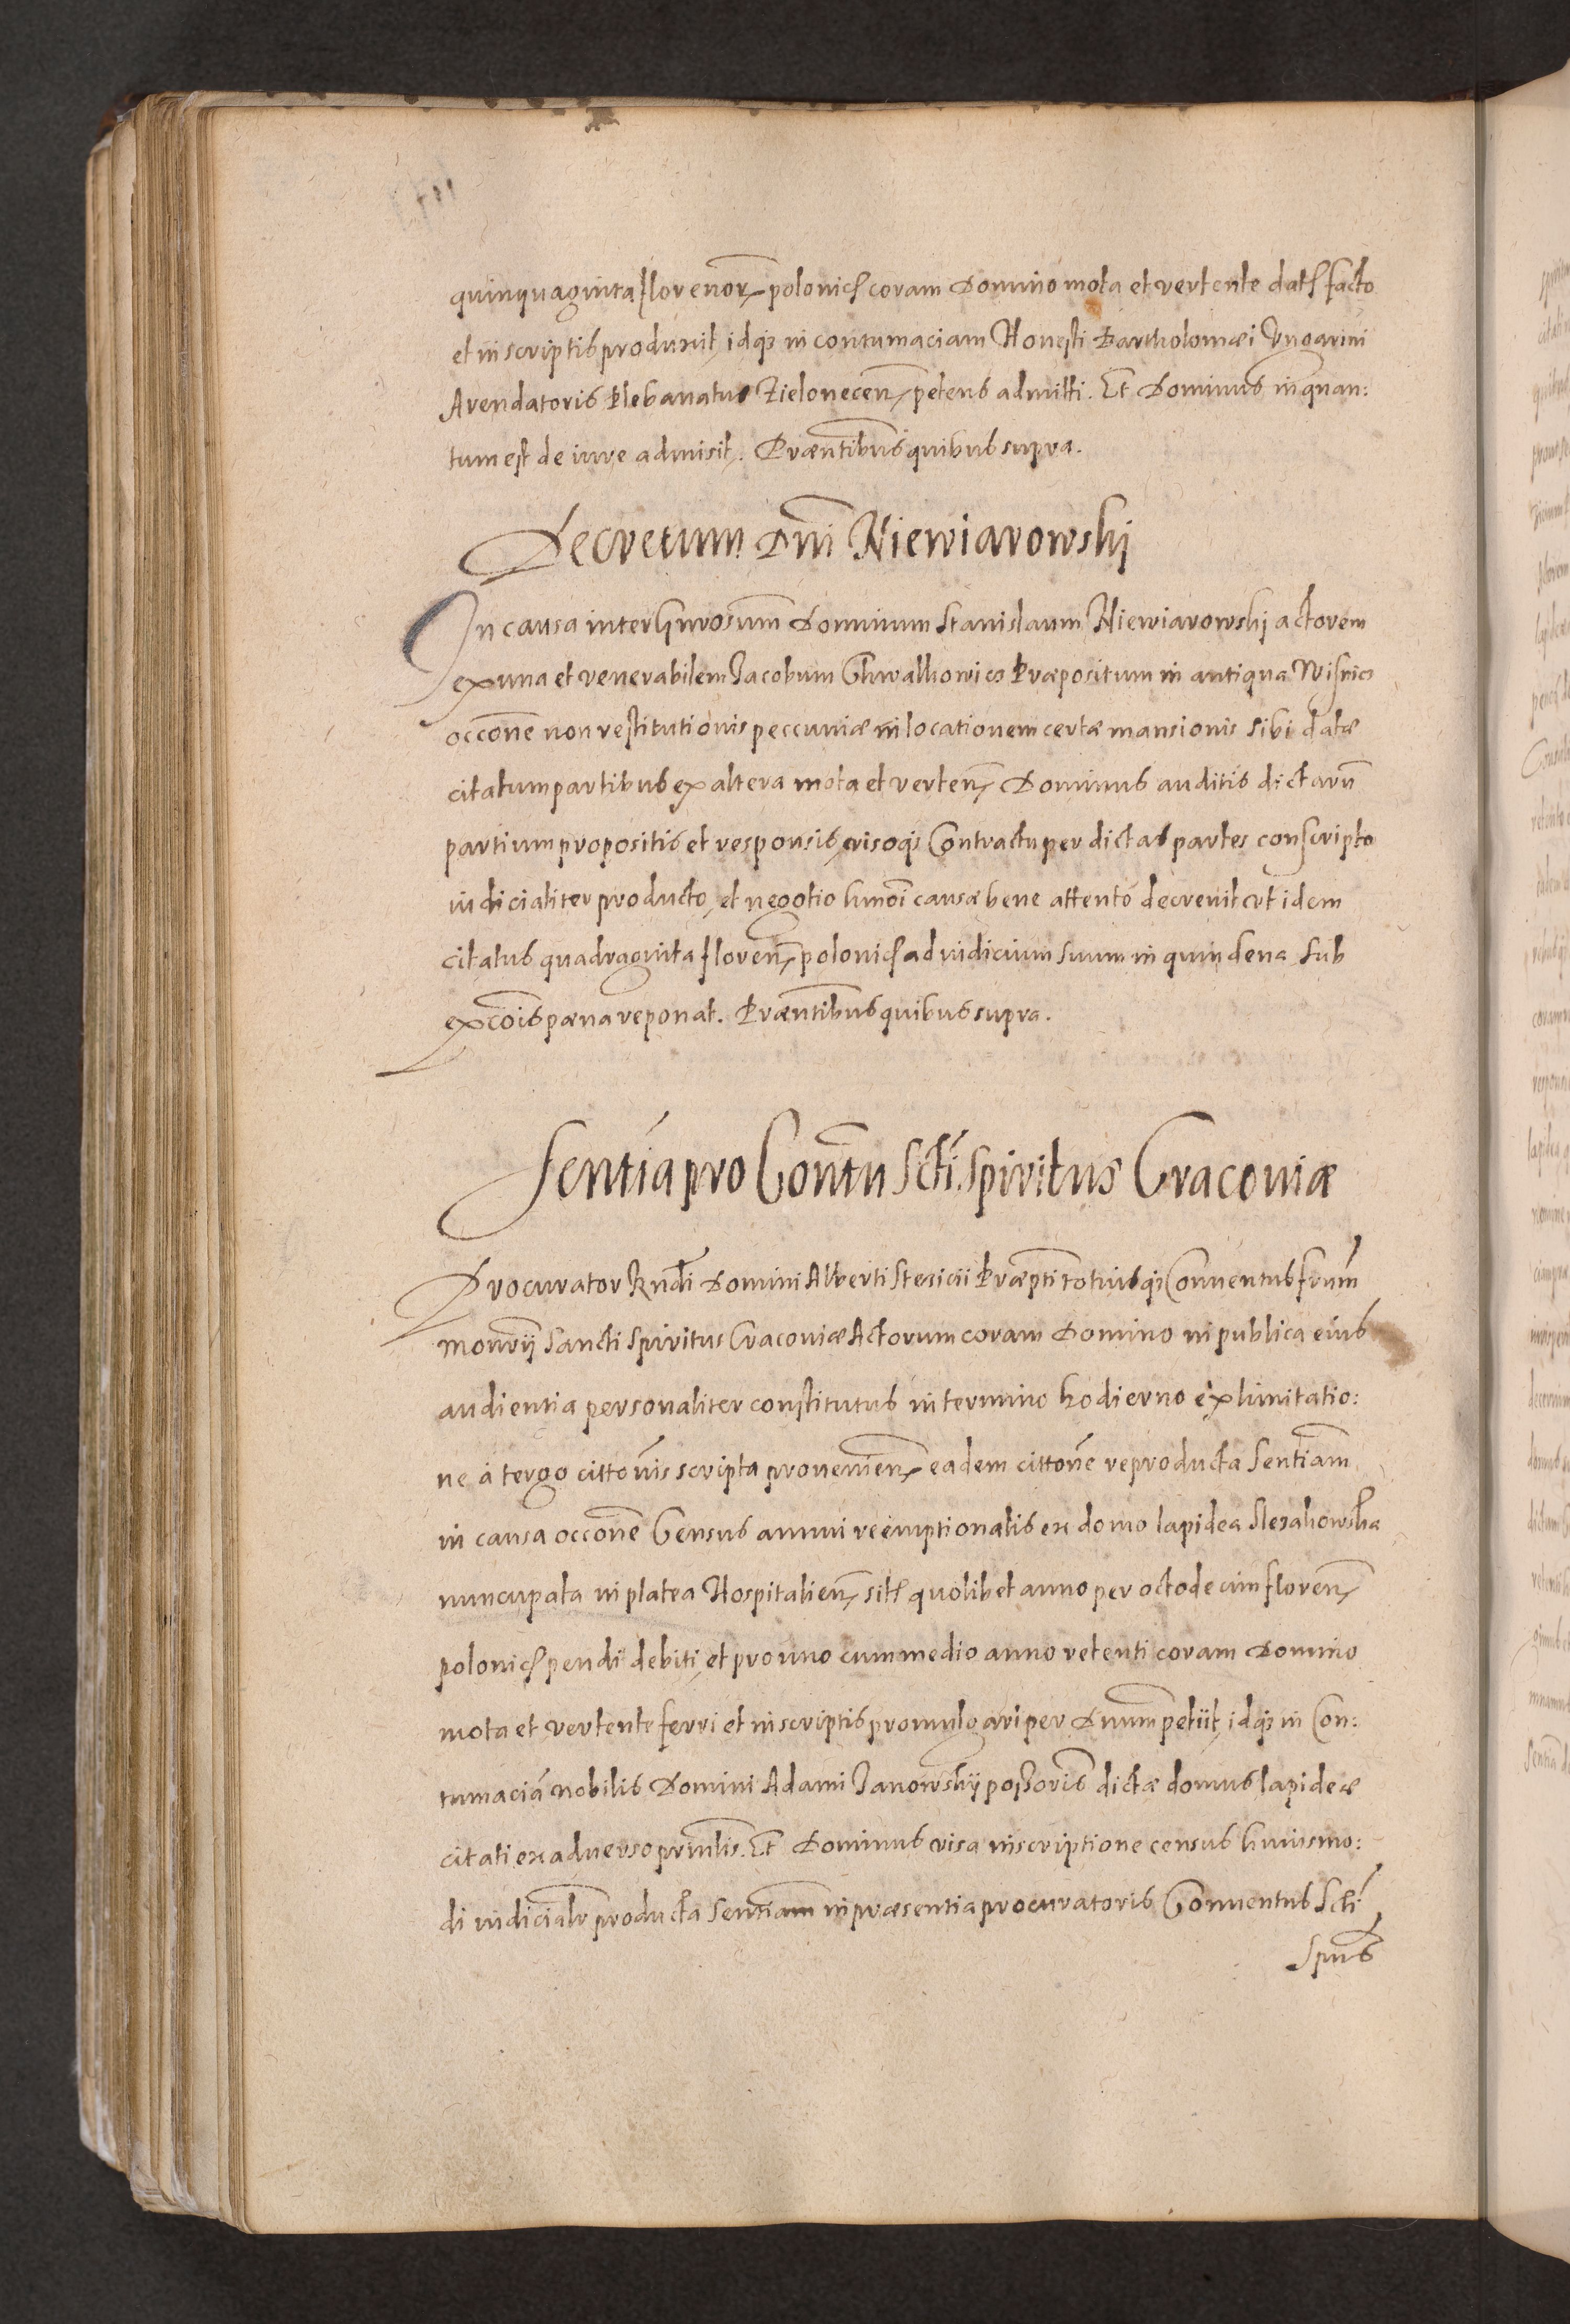 quinquaginta florenor~ polonic~ coram Domino mota et vertente dat~ facto
et in scriptis produxit, idq3 in contumaciam Honesti Bartholomæi Vngarini
Arendatoris Plebanatus Zielonecen~ petens admitti. Et Dominus in quan:
tum est de iure admisit. Præntibus quibus supra.
Decretum Dni Niewiarowski
In causa inter Gnrosum Dominum Stanislaum Niewiarowskj actorem
ex una et venerabilem Jacobum Chwalkowicz Præpositum in antiqua Wisnicz
occone non restitutionis peccuniæ in locationem certæ mansionis sibi datæ
citatum partibus ex altera mota et verten~ Dominus auditis dictarū
partium propositis et responsis, visoq3 Contractu per dictas partes conscripto
iudicialiter producto, et negotio hmoi causæ bene attento decrevit vt idem
citatus quadraginta floren~ polonic~ ad iudicium suum in quindena sub
excois pæna reponat. Præntibus quibus supra.
Sentia pro Conntu Scti Spiritus Cracouiæ
Procurator Rndi Domini Alberti Præpti totiusq3 Conuentus frum
monrij Sancti Spiritus Cracouiæ Actorum coram Domino in publica eius
audientia personaliter constitutus in termino hodierno ex limitatio:
ne à tergo cittonis scripta prouenien~ eadem cittone reproducta Sentiam
in causa occone Census annui reemptionalis ex domo lapidea
nuncupata in platea Hospitalien~ sit~ quolibet anno per octodecim floren~
polonic~ pendi debiti, et pro uno cum medio anno retenti coram Domino
mota et vertente ferri et in scriptis promulgari per Dnum petiit, idq3 in Con:
tumaciā nobilis Domini Adami Janowskij possoris dictæ domus lapideæ
citati ex aduerso prinlis. Et Dominus visa inscriptione census huiusmo:
di iudicialr producta Sentiam in præsentia procuratoris Conuentus Scti
Spus